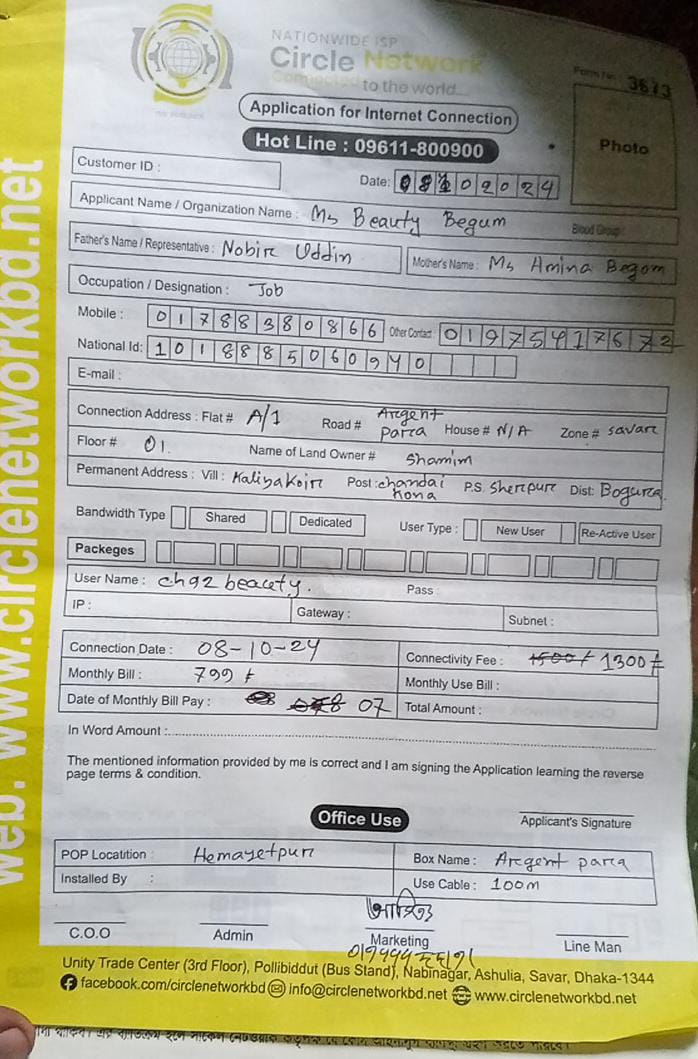 NATIONWIDE ISP
Circle Network
Connected to the world...
Form No. 3613
Application for Internet Connection
Hot Line : 09611-800900
Photo
Customer ID :
Date: 08102024
Applicant Name / Organization Name : Ms Beauty Begum Blood Group :
Father's Name / Representative : Nobir Uddin Mother's Name : Ms Amina Begom
Occupation / Designation : Job
Mobile : 01788380866 Other Contact : 01975417672
National Id: 1018885060940
E-mail :
Connection Address : Flat # A/1 Road # Argent para House # N/A Zone # savar
Floor # 01. Name of Land Owner # Shamim
Permanent Address : Vill : Kaliyakoir Post : chandai kona P.S. Sherpur Dist: Bogura.
Bandwidth Type Shared Dedicated User Type : New User Re-Active User
Packeges
User Name : ch92 beauty. Pass :
IP : Gateway : Subnet :
Connection Date : 08-10-24 Connectivity Fee : 1500/ 1300/=
Monthly Bill : 799 Monthly Use Bill :
Date of Monthly Bill Pay : 07 Total Amount :
In Word Amount :
The mentioned information provided by me is correct and I am signing the Application learning the reverse
page terms & condition.
Office Use
Applicant's Signature
POP Locatition : Hemayetpur Box Name : Argent para
Installed By : Use Cable : 100m
C.O.O Admin Marketing Line Man
Unity Trade Center (3rd Floor), Pollibiddut (Bus Stand), Nabinagar, Ashulia, Savar, Dhaka-1344
facebook.com/circlenetworkbd info@circlenetworkbd.net www.circlenetworkbd.net
web: www.circlenetworkbd.net